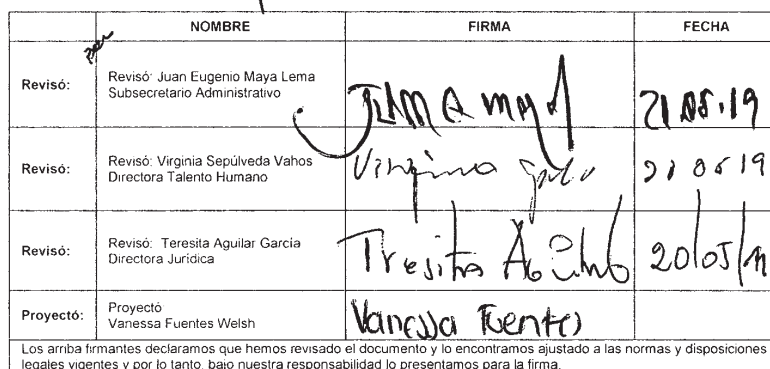 NOMBRE FIRMA FECHA
Revisó: Revisó: Juan Eugenio Maya Lema
Subsecretario Administrativo
21 05.19
Revisó: Revisó: Virginia Sepúlveda Vahos
Directora Talento Humano
Virginia
21 05 19
Revisó: Revisó: Teresita Aguilar García
Directora Jurídica
Tresita
20/05/19
Proyectó: Proyectó
Vanessa Fuentes Welsh
Vanessa Fuentes
Los arriba firmantes declaramos que hemos revisado el documento y lo encontramos ajustado a las normas y disposiciones
legales vigentes y por lo tanto, bajo nuestra responsabilidad lo presentamos para la firma.